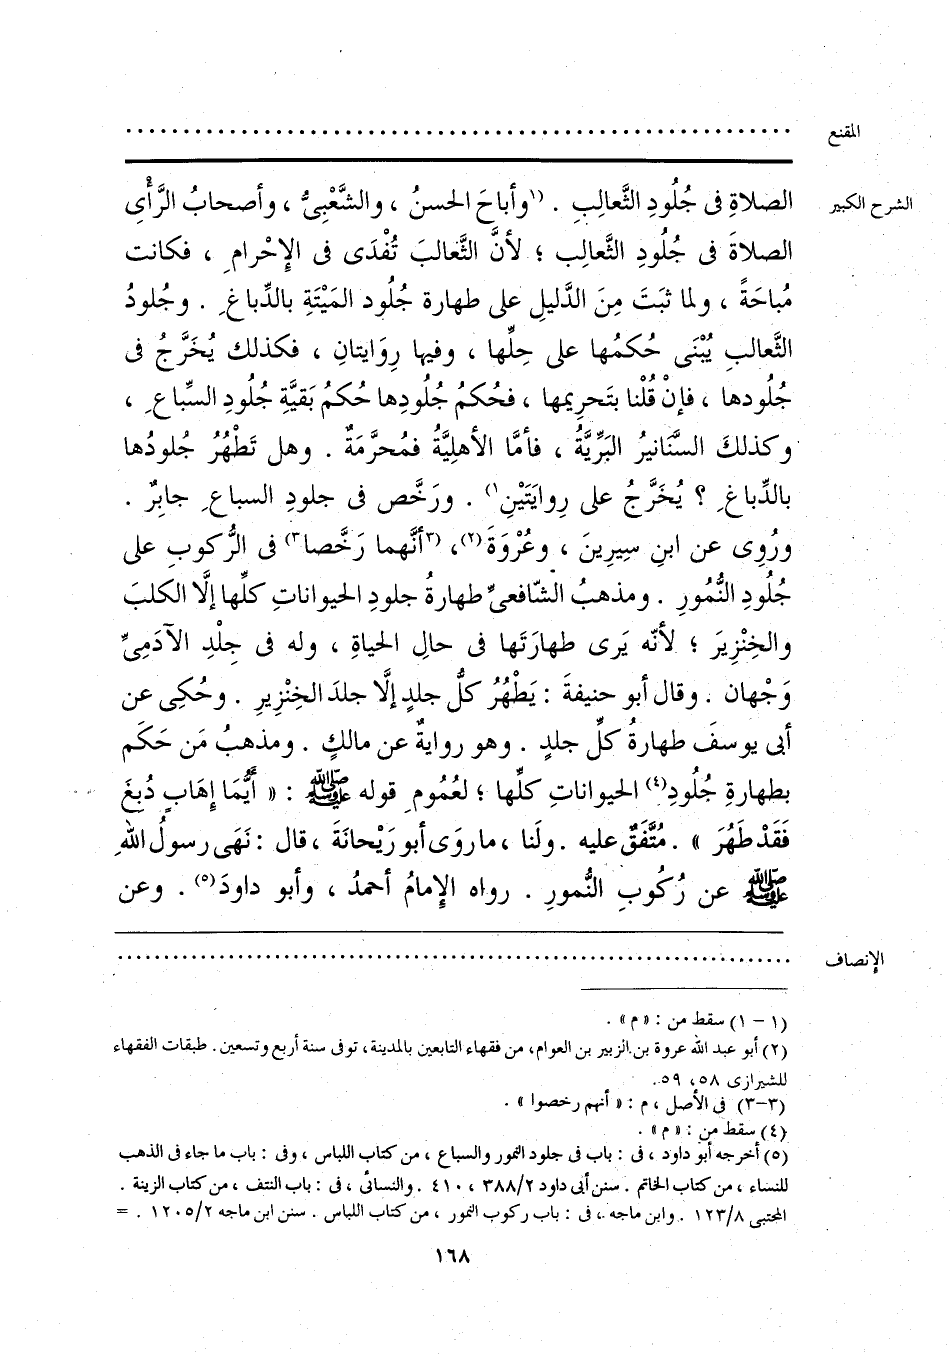 المقنع
الشرح الكبير
الصلاةِ فى جُلُودِ الثَّعالبِ . (١وأباحَ الحسنُ ، والشَّعْبِىُّ ، وأصحابُ الرَّأْىِ
الصلاةَ فى جُلُودِ الثَّعالب ؛ لأنَّ الثَّعالبَ تُفْدَى فى الإِحْرامِ ، فكانت
مُباحَةً ، ولما ثبَتَ مِنَ الدَّليلِ على طهارة جُلُود المَيْتَةِ بالدِّباغِ . وجُلودُ
الثَّعالبِ يُبْنَى حُكمُها على حِلِّها ، وفيها رِوَايتانِ ، فكذلك يُخَرَّجُ فى
جُلُودها ، فإنْ قُلْنا بتَحريمها ، فحُكمُ جُلُودِها حُكمُ بَقيَّةِ جُلُودِ السِّباعِ ،
وكذلكَ السَّنَانيرُ البَرِّيَّةُ ، فأمَّا الأهلِيَّةُ فمُحرَّمَةٌ . وهل تَطْهُرُ جُلودُها
بالدِّباغِ ؟ يُخَرَّجُ على رِوايَتَيْنِ١) . ورَخَّص فى جلودِ السباعِ جابِرٌ .
ورُوِى عن ابنِ سِيرِينَ ، وعُرْوَةَ(٢)، (٣أنَّهما رَخَّصا٣) فى الرُّكوبِ على
جُلُودِ النُّمُورِ . ومذهبُ الشّافعىِّ طهارةُ جلودِ الحيواناتِ كلِّها إلَّا الكلبَ
والخِنْزِيرَ ؛ لأنّه يَرى طهارَتَها فى حالِ الحياةِ ، وله فى جِلْدِ الآدَمِىِّ
وَجْهان . وقال أبو حنيفةَ : يَطْهُرُ كلُّ جلدٍ إلَّا جلدَ الخِنْزِيرِ . وحُكِى عن
أبى يوسفَ طهارةُ كلِّ جلدٍ . وهو روايةٌ عن مالكٍ . ومذهبُ مَن حَكَم
بطهارةِ جُلُودِ(٤) الحيواناتِ كلِّها ؛ لعُمُومِ قوله ﷺ : « أَيُّمَا إِهَابٍ دُبِغَ
فَقَدْ طَهُرَ » . مُتَّفَقٌ عليه . ولَنا ، ما روَى أبو رَيْحانَةَ ، قال : نَهَى رسولُ اللهِ
ﷺ عن رُكُوبِ النُّمورِ . رواه الإِمامُ أحمدُ ، وأبو داودَ(٥) . وعن
الإنصاف
(١ - ١) سقط من : « م » .
(٢) أبو عبد الله عروة بن الزبير بن العوام، من فقهاء التابعين بالمدينة، توفى سنة أربع وتسعين . طبقات الفقهاء
للشيرازى ٥٨، ٥٩.
(٣-٣) فى الأصل ، م : « أنهم رخصوا » .
(٤) سقط من : « م » .
(٥) أخرجه أبو داود ، فى : باب فى جلود النمور والسباع ، من كتاب اللباس ، وفى : باب ما جاء فى الذهب
للنساء ، من كتاب الخاتم . سنن أبى داود ٣٨٨/٢ ، ٤١٠ . والنسائى ، فى : باب النتف ، من كتاب الزينة .
المجتبى ١٢٣/٨ . وابن ماجه ، فى : باب ركوب النمور ، من كتاب اللباس . سنن ابن ماجه ١٢٠٥/٢ . =
١٦٨